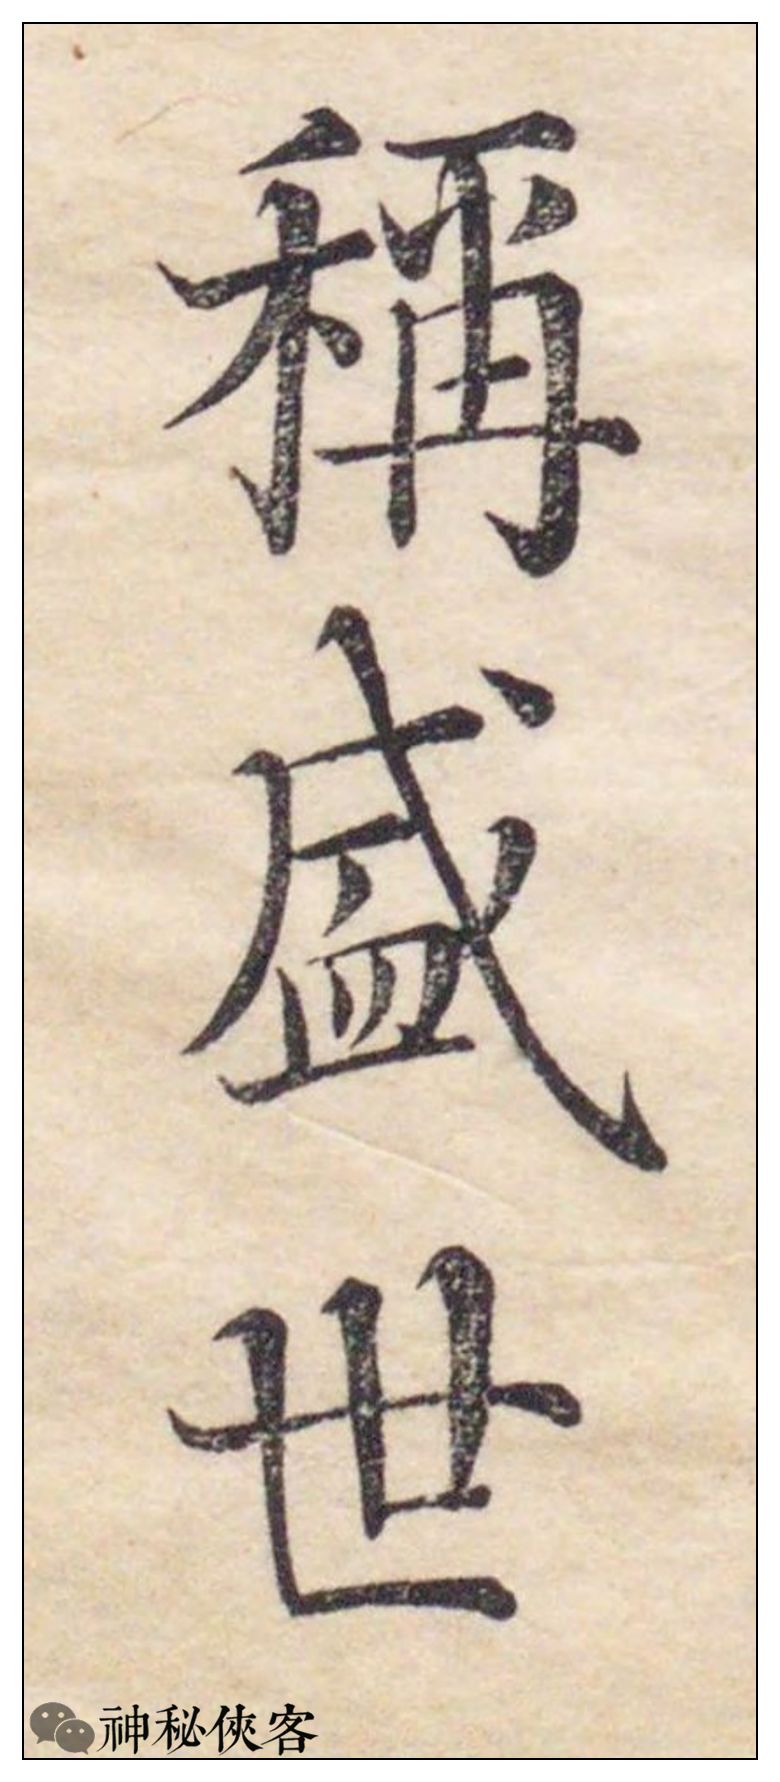 稱盛世
神秘俠客